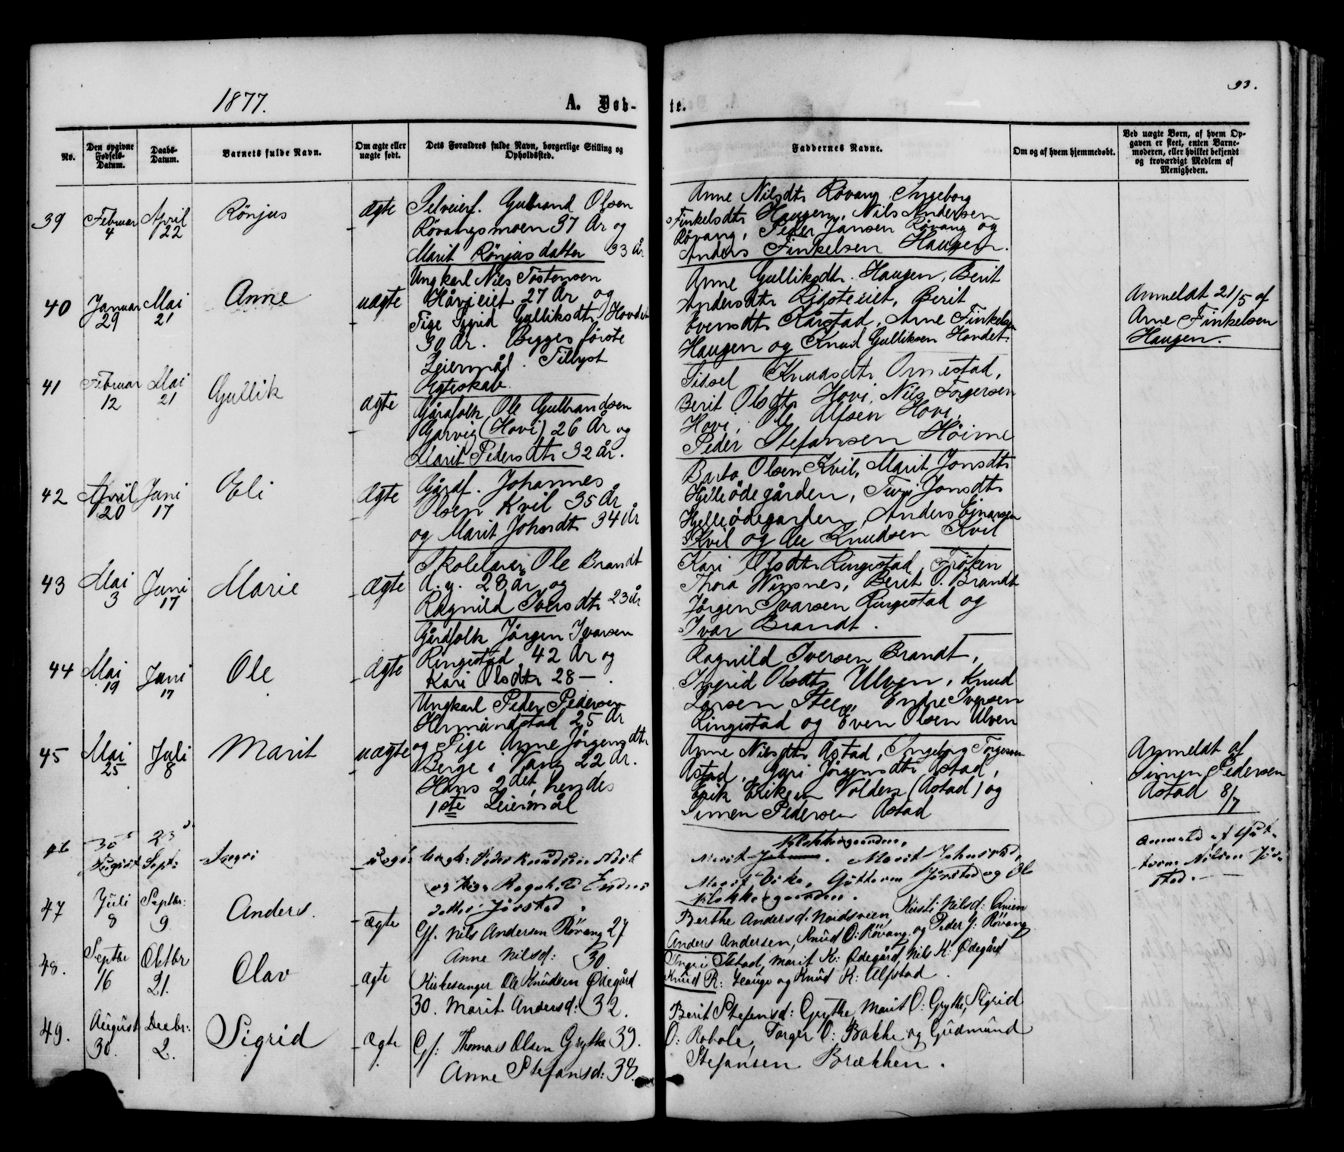 1877.
A. Døb-
te.
93.
No.
Den opgivne Fødsels-Datum.
Daabs-Datum.
Barnets fulde Navn.
Om ægte eller uægte født.
Dets Forældres fulde Navn, borgerlige Stilling og Opholdssted.
Faddernes Navne.
Om og af hvem hjemmedøbt.
Ved uægte Børn, af hvem Opgaven er skeet, enten Barnemoderen, eller hvilket bekjendt og troværdigt Medlem af Menigheden.
39
Februar 4
April 22
Rønjus
ægte
Selveierf. Gulbrand Olsen
Røvangsmoen 37 År og
Marit Rønjusdatter 33 År.
Anne Nilsdt. Røvang, Ingeborg
Finkelsdt. Haugen, Nils Andersen
Røvang, Peder Jansen Røvang og
Anders Finkelsen Haugen.
40
Januar 29
Mai 21
Anne
uægte
Ungkarl Nils Tostensen
27 År og
Pige Sigrid Gulliksdt. Hovdet
30 År. Begges første
Leiermål. Tillyst
Ægteskab.
Anne Gulliksdt. Haugen, Berit
Andersdt. Berit
Evensdt. Kårstad, Arne Finkelsen
Haugen og Knud Gulliksen Hovdet.
Anmeldt 21/5 af
Arne Finkelsen
Haugen.
41
Februar 12
Mai 21
Gullik
ægte
Gårdfolk Ole Gulbrandsen
Garvig (Hovi) 26 År og
Marit Pedersdt. 32 år.
Sidsel Knudsdt. Ormestad,
Berit Olsdt. Hovi, Nils Torgersen
Hovi, Ole Alfsen Hovi,
Peder Stefansen Høime
42
April 20
Juni 17
Eli
ægte
Gårdf. Johannes
Olsen Kvil 35 År
og Marit Johsdt. 34 År
Barbo Olsen Kvil, Marit Jonsdt.
Hjelleødegården, Turi Jonsdt.
Hjelleødegarden, Anders Einarsen
Kvil og Ole Knudsen Kvil
43
Mai 3
Juni 17
Marie
ægte
Skolelærer Ole Brandt
d. y. 28 år og
Ragnild Iversdt. 23 år
Kari Olsdt. Ringestad, Frøken
Thora Wigsnes, Berit O. Brandt
Jørgen Ivarsen Ringestad og
Ivar Brandt.
44
Mai 19
Juni 17
Ole
ægte
Gårdfolk Jørgen Ivarsen
Ringestad, 42 År og
Kari Olsdt. 28 —.
Ragnild Iversen Brandt,
Ingrid Olsdt. Ulven, Knud
Larsen Stee, Endre Iversen
Ringestad og Even Olsen Ulven
45
Mai 25
Juli 8
Marit
uægte
Ungkarl Peder Pedersen
Hermundstad 25 År
og Pige Anne Jørgensdtr.
Berge i Vang 22 År.
Hans 2det, hendes
1ste Leiermål
Anne Nilsdt. Østad, Ingeborg Torgersen
Østad, Guri Jørgensdt. Østad,
Erik Eriksen Volden (Østad) og
Simen Pedersen Østad
Anmeldt af
Simen Pedersen
Østad 8/7
46
30
August
23
Sept:
Ingri
uægte
Ungk: Peder Knudsen
og Pige Ragnhild Endres-
datter Jørstad.
Klokkergaarden
Marit Marit Johnsd:
Marit Guttorm Jørstad og Ole
Klokkergaarden.
Anmeldt af Gut-
torm Nilsen Jør-
stad.
47
Juli 8
Septbr: 9
Anders.
ægte
Gf. Nils Andersen Røvang 27
Anne Nilsd: 30
Berthe Andersd: Kirsti Nilsd:
Anders Andersen, Knud O: Røvang og Peder J: Røvang
48.
Septbr 16
Oktbr 21.
Olav
ægte
Kirkesanger Ole Knudsen Ødegård
30. Marit Andersd: 32.
Ingri Marit K: Ødegård, Nils K: Ødegård
Knud R: Hauge og Knud K: Alfstad.
49.
August 30.
Decbr: 2.
Sigrid
ægte
Gf: Thomas Olsen Grythe 39.
Anne Stefansd: 38.
Berit Stefensd: Grythe, Marit O: Grythe, Sigrid
O: Robole, Torger O: Bakke og Gudmund
Stefansen Brækken.